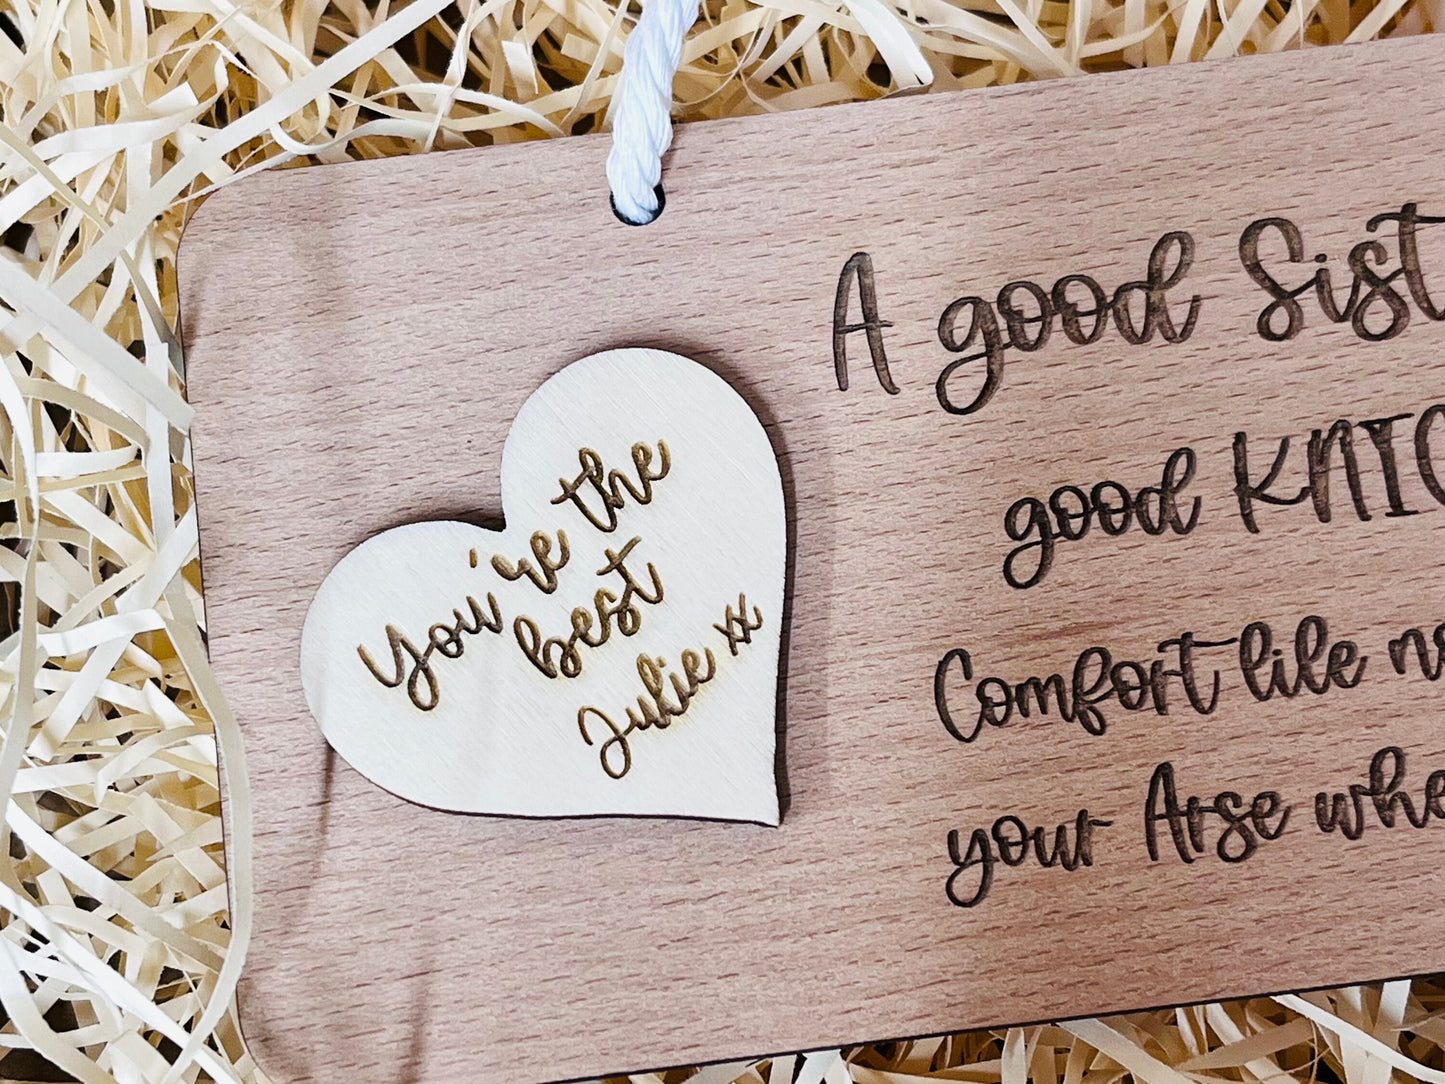 You're the
best
Julie xx
A good Sist
good KNIC
Comfort life n
your Arse whe